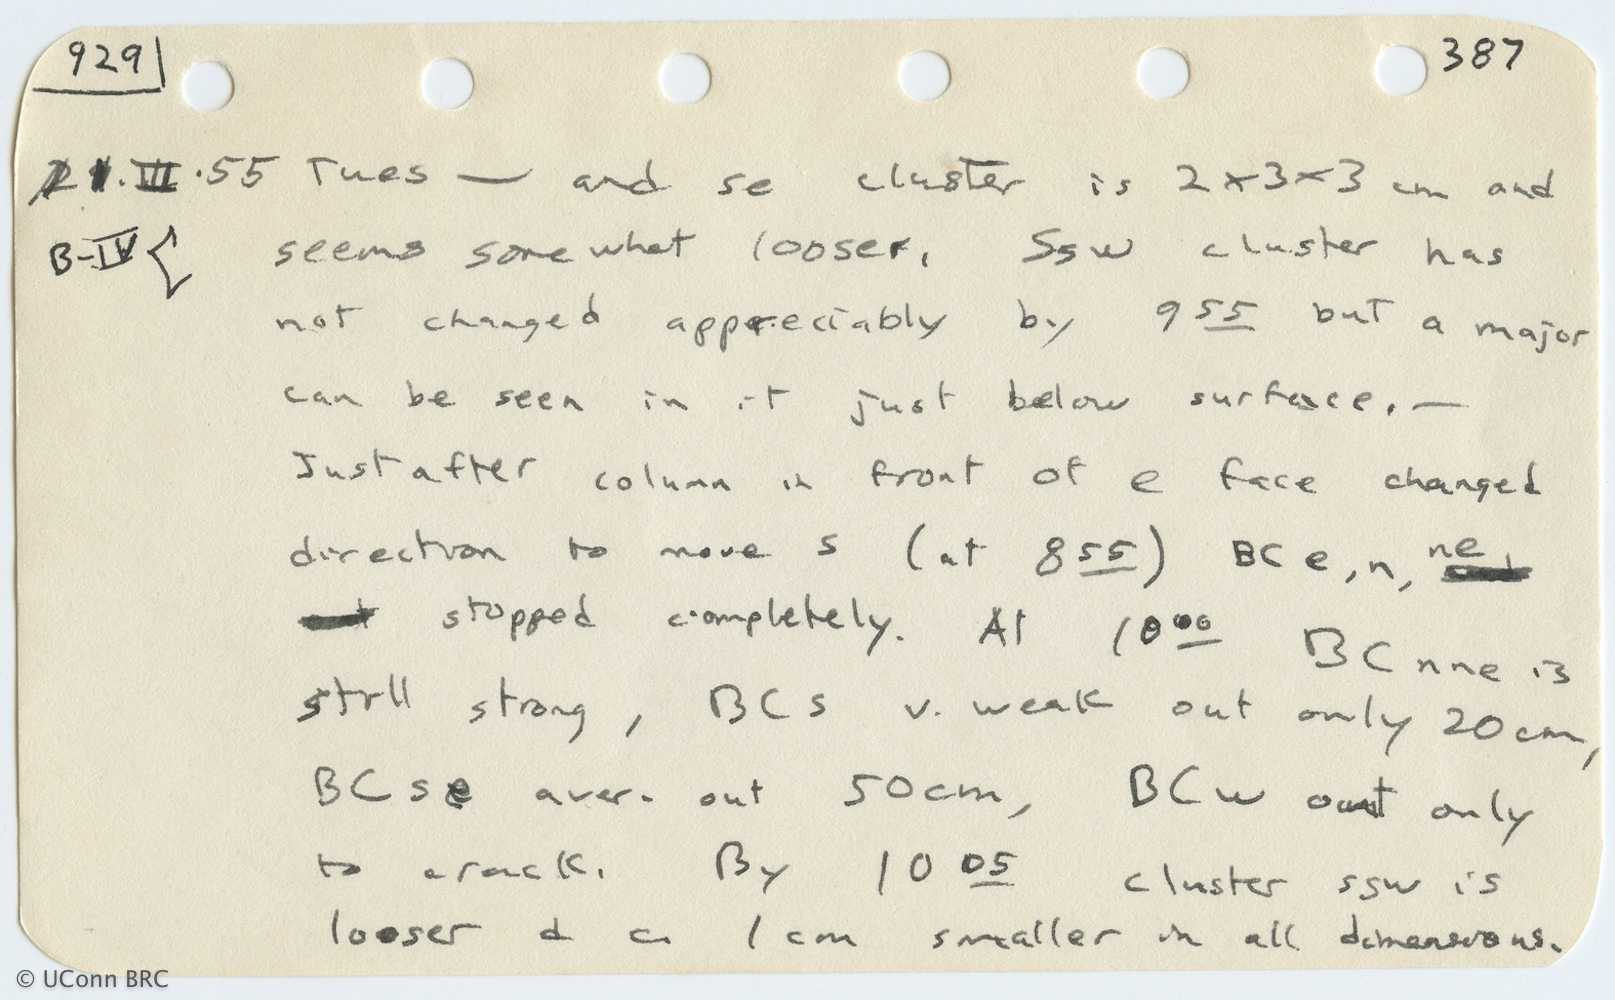 929 387
21.III.55 Tues — and se cluster is 2x3x3 cm and
B-IV seems somewhat looser. SSW cluster has
not changed appreciably by 9 55 but a major
can be seen in it just below surface. —
Just after column in front of e face changed
direction to move S (at 8 55) BC e, n, ne
stopped completely. At 10 00 BC nne is
still strong, BC S v. weak out only 20 cm,
BC se aver. out 50 cm, BC w out only
to crack. By 10 05 cluster ssw is
looser & ca 1 cm smaller in all dimensions.
© UConn BRC